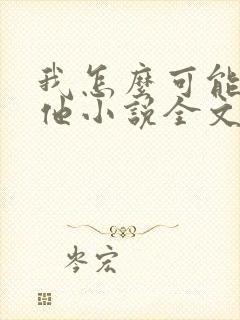 我怎麼可能
他小說全文
岑宏